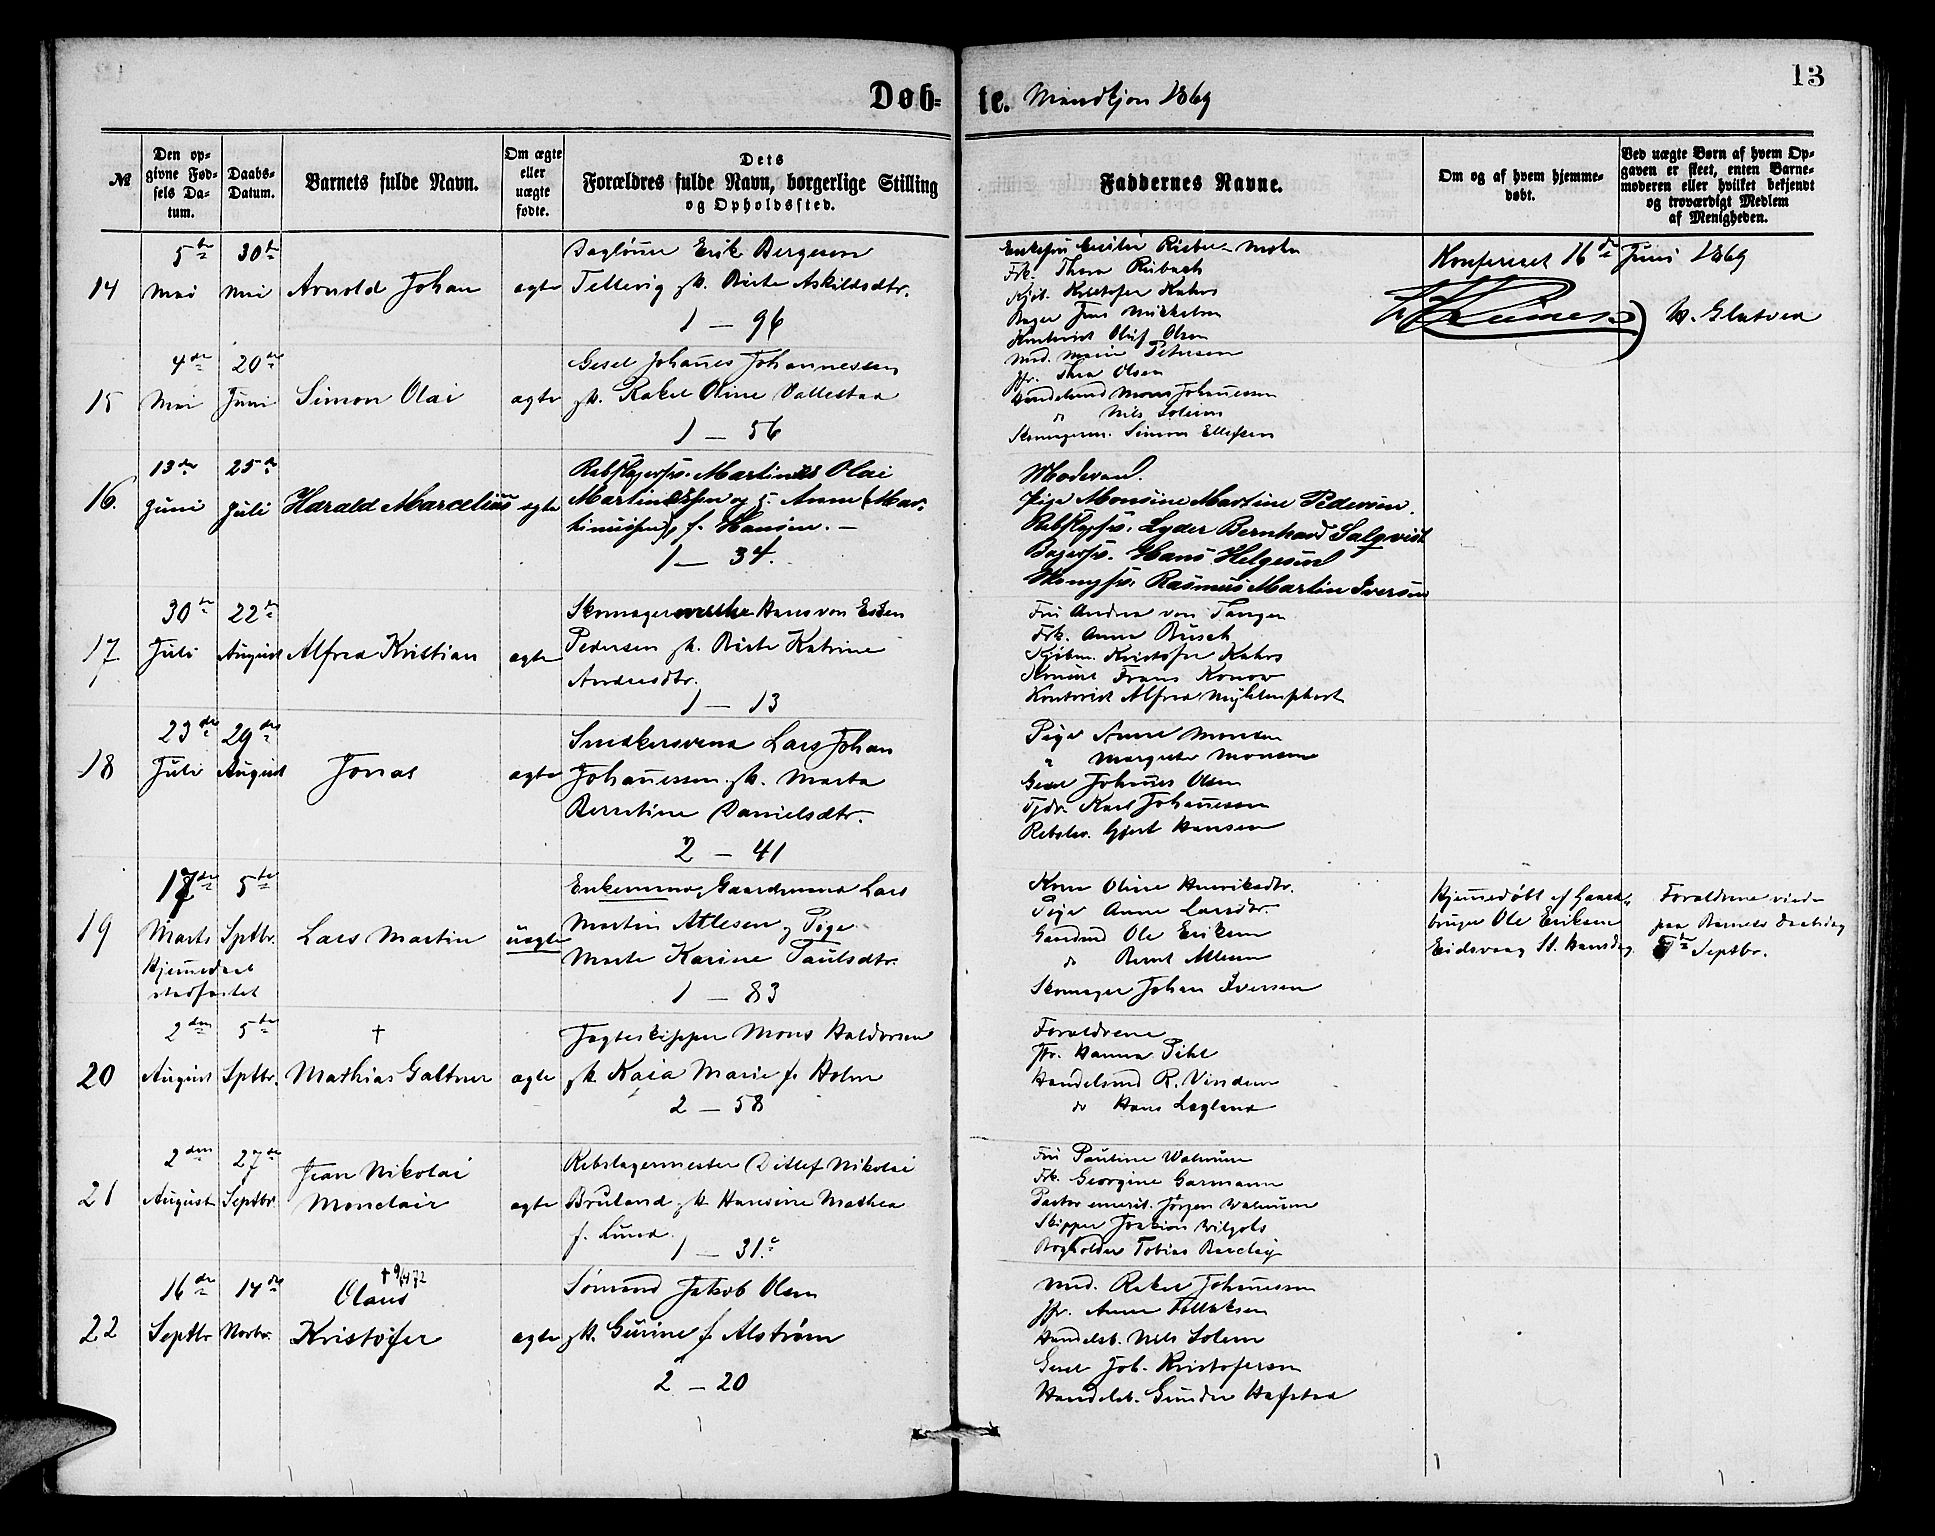 13
Døb=te. Mandkjøn 1869
№
Den opgivne Fødsels Datum.
Daabs-Datum.
Barnets fulde Navn.
Om ægte eller uægte fødte.
Dets Forældres fulde Navn, borgerlige Stilling og Opholdssted.
Faddernes Navne.
Om og af hvem hjemmedøbt.
Ved uægte Børn af hvem Opgaven er skeet, enten Barnemoderen eller hvilket bekjendt og troværdigt Medlem af Menigheden.
14
5te Mai
30te Mai
Arnold Johan
ægte
Erik Bergesen
Tellevig Birte Askildsdtr.
1 – 96
Frk. Thora
Kjøb. Kahrs
Bager Jens Mikkelsen
Kontorist Oluf Olsen
Konfereret 16de Juni 1869
15
4de Mai
20de Juni
Simon Olai
ægte
Gesel Johanes Johannessen
Rakel Oline Vallestad
1 – 56
Mad. Marie Petersen
Jfr. Thea Olsen
Handelsmd Mons Johanessen
do Nils Solem
Skomagerm. Simon Ellefsen
16.
13de Juni
25de Juli
Harald Marcelius
ægte
Rebslagersv. Martinus Olai
Martinussen og H. Anna (Mar-
tinussen) f. Hansen. –
1 – 34.
Moderen.
Pige Monsine Martine Pedersen.
Rebslgsv. Lyder Bernhard Salqvist
Bagersv. Hans Helgesen
Rasmus Martin Iversen
17
30te Juli
22de August
Alfred Kristian
ægte
Skomagermester Hans von Essen
Pedersen Birte Katrine
Andersdtr.
1 – 13
Fru Andrea von Tangen
Frk. Anna Busch
Kjøbm. Kristofer Kahrs
Frans Konow
Kontorist Alfred
18
23de Juli
29de August
Jonas
ægte
Snedkersvend Lars Johan
Johanessen Marta
Berntine Danielsdtr.
2 – 41
Pige Anne Monsen
" Margrete Monsen
Gesel Johanes Olsen
Karl Johanessen
Rebslsv. Gjert Hansen
19
17de Marts
5te Sptbr.
Hjemmedaab
stadfæstet
Lars Martin
uægte
Enkemand Gaardmand Lars
Martin Atlesen og Pige
Marte Karine Paulsdtr.
1 – 83
Kone Oline Henriksdtr.
Pige Anne Larsdtr.
Gaardmd Ole Eriksen
do Bernt Atlesen
Skomager Johan Iversen
Hjemmedøbt af Gaard-
bruger Ole Eriksen
Eidsvaag St. Hansdag.
Forældrene viede
paa Barnets Daabsdag
5te Septbr.
20
2den August
5te Sptbr.
†
Mathias Galtner
ægte
Jagteskipper Mons Haldorsen
Kaia Marie f. Holm
2 – 58
Forældrene
Jfr. Hanna Pihl
Handelsmd R. Vindenes
do Hans Lægland
21
2den August
27de Septbr.
Jean Nikolai
Monclair
ægte
Rebslagermester Ditlef Nikolai
Bruland Hansine Mathea
f. Lund
1 – 31.c
Fru Pauline Walnum
Frk. Georgine Garmann
Pastor emerit. Jørgen Walnum
Skipper Joakim
Bogholder Tobias Barclay
22
16de Septbr
14de Novbr.
† 9/4 72
Olaus
Kristofer
ægte
Sømand Jakob Olsen
Gurine f. Alstrøm
2 – 20
Mad. Rakel Johanessen
Jfr. Anne
Handelsb. Nils Solem
Gesel Joh. Kristofersen
Handelsb. Gunder Hafstad